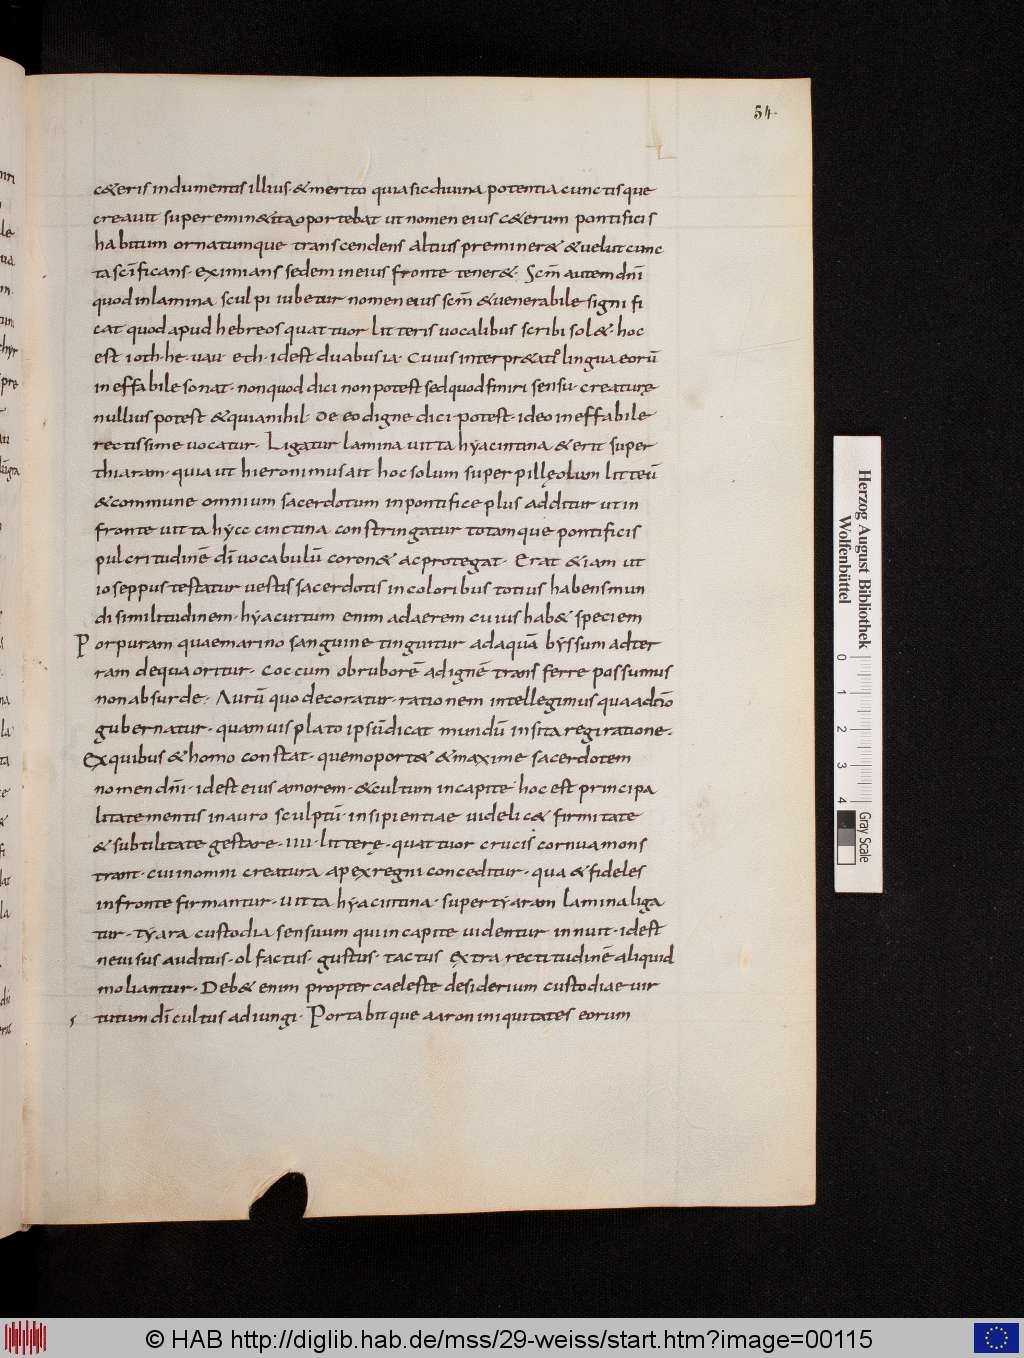 54.
c&eris indumentis illius · & merito quia sic diuina potentia cunctis que
creauit super emin& ita oportebat ut nomen eius c&erum pontificis
habitum ornatumque transcendens altius preminer& & uelut cunc
ta scīficans · eximians sedem in eius fronte tener& · Scm̄ autem dn̄i
quod in lamina sculpi iubetur nomen eius scm̄ & uenerabile signifi
cat quod apud hebreos quattuor litteris uocalibus scribi sol& · hoc
est ioth · he · uau eth · idest duabus ia · Cuius interpr&atio lingua eorū
ineffabile sonat · non quod dici non potest sed quod finiri sensu · creaturę
nullius potest & quia nihil · De eo digne dici · potest · ideo ineffabile
rectissime uocatur · Ligatur lamina uitta hẏacintina & erit super
thiaram · quia ut hieronimus ait hoc solum super pillęolum litteū
& commune omnium sacerdotum in pontifice plus additur ut in
fronte uitta hẏccinctina constringatur totamque pontificis
pulcritudinē dī uocabulū coron& ac protegat · Erat & iam ut
ioseppus testatur uestis sacerdotis in coloribus totius habens mun
di similitudinem · hẏacintum enim ad aerem cuius hab& speciem
Porpuram quae marino sanguine tinguitur ad aquā bẏssum ad ter
ram de qua oritur · Coccum ob ruborē ad ignē transferre possumus
non absurde · Aurū quo decoratur · rationem intellegimus qua
gubernatur · quamuis plato ipsū dicat mundū insita regi ratione ·
Ex quibus & homo constat · quem oport& & maxime sacerdotem
nomen dn̄i · idest eius amorem · & cultum in capite hoc est principa
litate mentis in auro sculptū · in sipientiae uidelic& firmitate
& subtilitate gestare · IIII · litterę · quattuor crucis cornua mons
trant · cui in omni creatura apex regni conceditur · qua & fideles
in fronte firmantur · uitta hẏacintina · super tẏaram lamina liga
tur · tẏara custodia sensuum qui in capite uidentur innuit · idest
ne uisus auditus · olfactus · gustus · tactus extra rectitudinē aliquid
moliantur · Deb& enim propter caeleste desiderium custodiae uir
tutum dī cultus adiungi · Portabitque aaron iniquitates eorum
Herzog August Bibliothek
Wolfenbüttel
0 1 2 3 4
Gray Scale
© HAB http://diglib.hab.de/mss/29-weiss/start.htm?image=00115